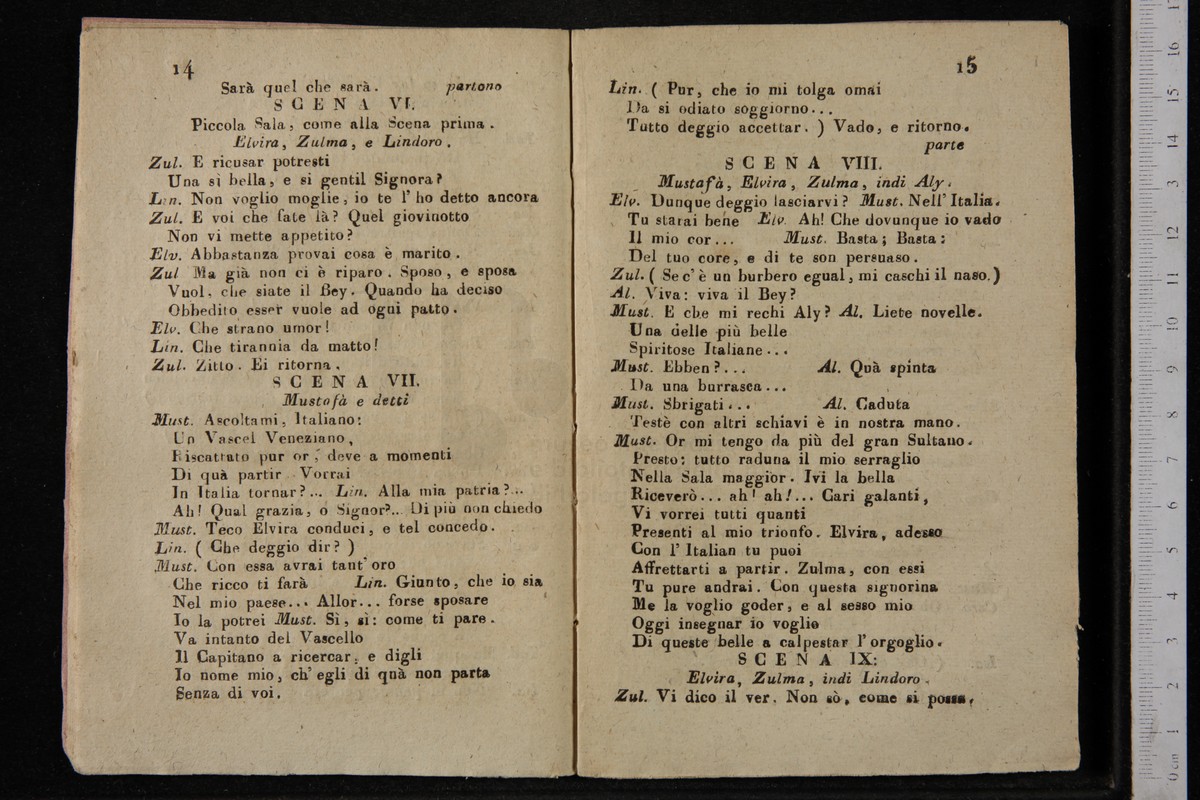 14
Sarà quel che sarà. partono
SCENA VI.
Piccola Sala, come alla Scena prima.
Elvira, Zulma, e Lindoro.
Zul. E ricusar potresti
Una sì bella, e si gentil Signora?
Lin. Non voglio moglie, io te l'ho detto ancora
Zul. E voi che fate là? Quel giovinotto
Non vi mette appetito?
Elv. Abbastanza provai cosa è marito.
Zul Ma già non ci è riparo. Sposo, e sposa
Vuol, che siate il Bey. Quando ha deciso
Obbedito esser vuole ad ogni patto.
Elv. Che strano umor!
Lin. Che tirannia da matto!
Zul. Zitto. Ei ritorna.
SCENA VII.
Mustafà e detti
Must. Ascoltami, Italiano:
Un Vascel Veneziano,
Riscattato pur or, deve a momenti
Di quà partir. Vorrai
In Italia tornar?... Lin. Alla mia patria?...
Ah! Qual grazia, o Signor?... Di più non chiedo
Must. Teco Elvira conduci, e tel concedo.
Lin. ( Che deggio dir? )
Must. Con essa avrai tant' oro
Che ricco ti farà Lin. Giunto, che io sia
Nel mio paese... Allor... forse sposare
Io la potrei Must. Sì, sì: come ti pare.
Va intanto del Vascello
Il Capitano a ricercar, e digli
Io nome mio, ch' egli di quà non parta
Senza di voi.
15
Lin. ( Pur, che io mi tolga omai
Da si odiato soggiorno...
Tutto deggio accettar. ) Vado, e ritorno.
parte
SCENA VIII.
Mustafà, Elvira, Zulma, indi Aly.
Elv. Dunque deggio lasciarvi? Must. Nell' Italia.
Tu starai bene Elv. Ah! Che dovunque io vado
Il mio cor... Must. Basta; Basta:
Del tuo core, e di te son persuaso.
Zul. ( Se c' è un burbero egual, mi caschi il naso.)
Al. Viva: viva il Bey?
Must. E che mi rechi Aly? Al. Liete novelle.
Una delle più belle
Spiritose Italiane...
Must. Ebben?... Al. Quà spinta
Da una burrasca...
Must. Sbrigati... Al. Caduta
Testè con altri schiavi è in nostra mano.
Must. Or mi tengo da più del gran Sultano.
Presto: tutto raduna il mio serraglio
Nella Sala maggior. Ivi la bella
Riceverò... ah! ah!... Cari galanti,
Vi vorrei tutti quanti
Presenti al mio trionfo. Elvira, adesso
Con l' Italian tu puoi
Affrettarti a partir. Zulma, con essi
Tu pure andrai. Con questa signorina
Me la voglio goder, e al sesso mio
Oggi insegnar io voglio
Di queste belle a calpestar l' orgoglio.
SCENA IX:
Elvira, Zulma, indi Lindoro.
Zul. Vi dico il ver. Non sò, come si possa,
0 cm 1 2 3 4 5 6 7 8 9 10 11 12 13 14 15 16 17